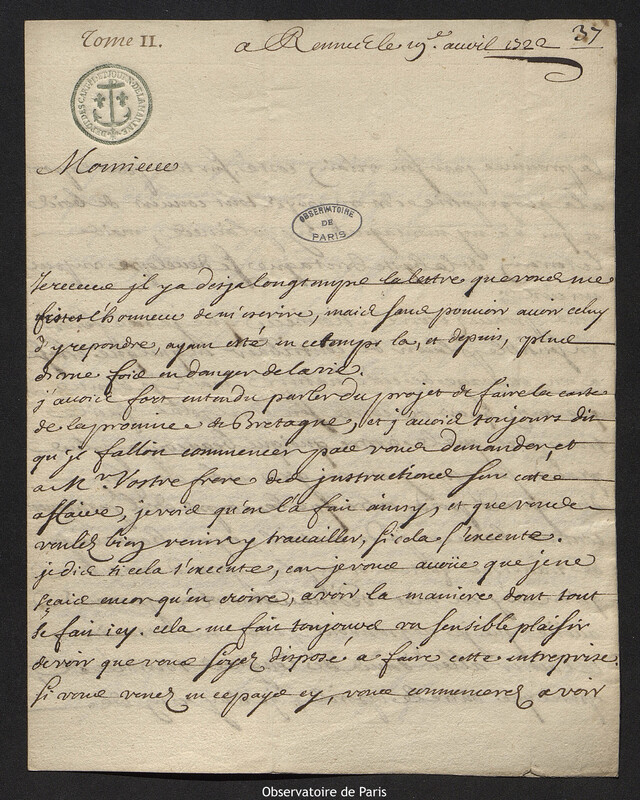 Tome II.
a Rennes le 19.e avril 1722
37
DEPOT DES CARTES ET JOURN. DE LA MARINE
Monsieur
OBSERVATOIRE
DE
PARIS
Je receus il y a desja longtemps la lettre que vous me
fistes l'honneur de m'escrire, mais sans pouvoir avoir celuy
d'y repondre, ayant esté en ce temps la, et depuis, plus
d'une fois en danger de la vie.
j'avois fort entendu parler du projet de faire la carte
de la province de Bretagne, et j'avois toujours dit
qu'il falloit commencer par vous demander, et
a Mr. Vostre frere des instructions sur cette
affaire, je vois qu'on l'a fait ainsy, et que vous
voulez bien venir y travailler, si cela s'execute.
je dis si cela s'execute, car je vous avoüe que je ne
sçais encor qu'en croire, a voir la maniere dont tout
se fait icy. cela me fait toujours un sensible plaisir
de voir que vous soyez disposé a faire cette entreprise.
si vous venez en ce pays cy, vous commencerez a voir
Observatoire de Paris